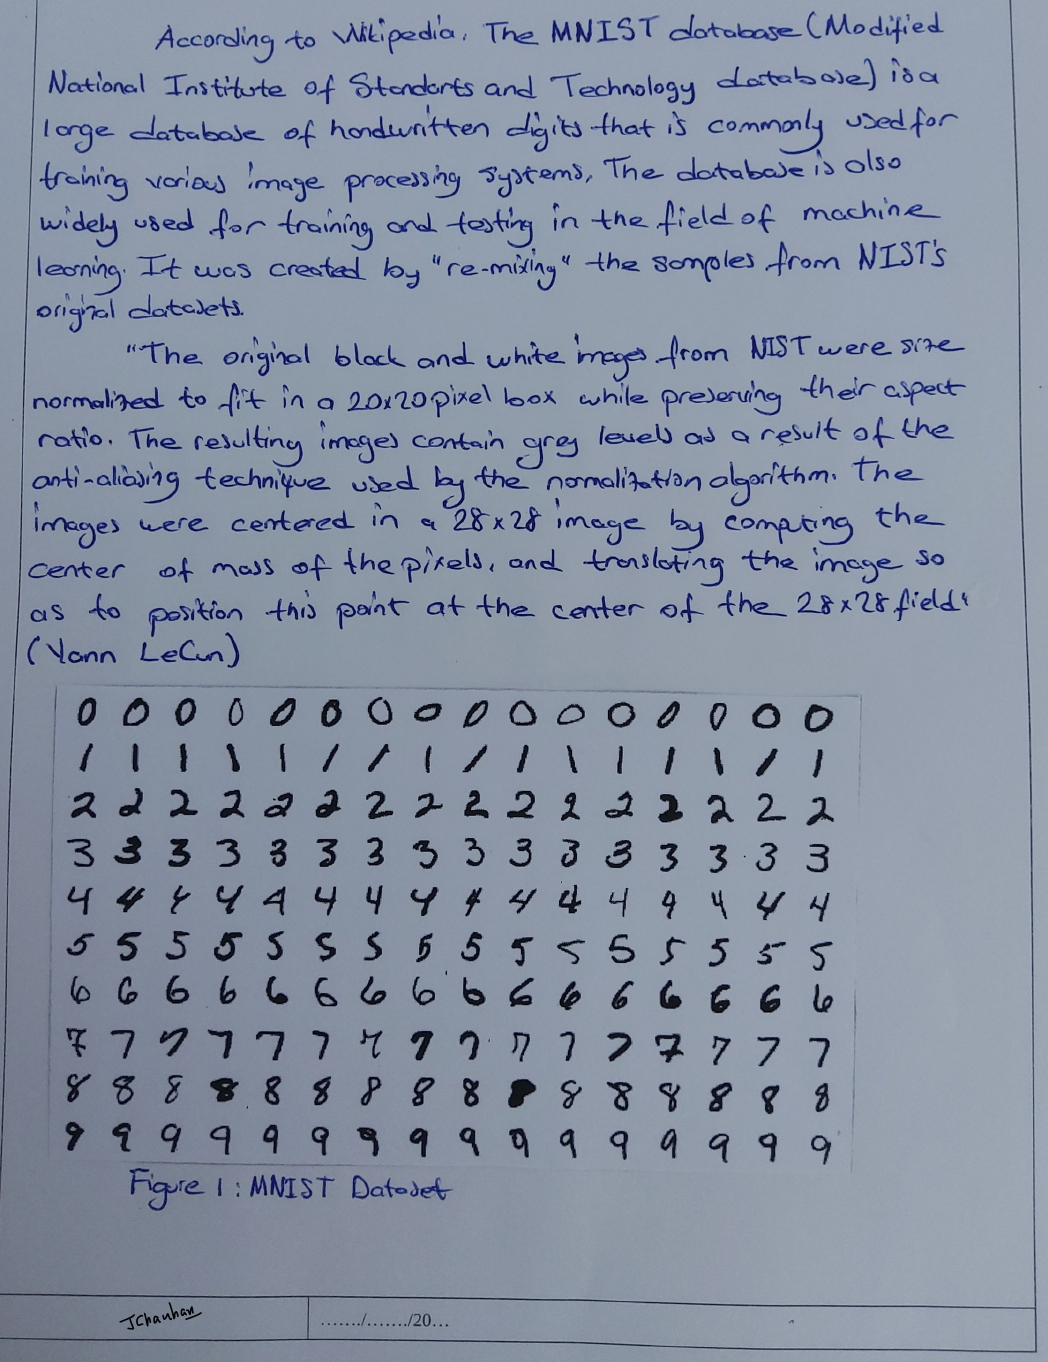 According to Wikipedia, The MNIST database (Modified
National Institute of Standarts and Technology database) is a
large database of handwritten digits that is commonly used for
training various image processing systems, The database is also
widely used for training and testing in the field of machine
learning. It was created by "re-mixing" the samples from NIST's
original datasets.
"The original black and white images from NIST were size
normalized to fit in a 20x20 pixel box while preserving their aspect
ratio. The resulting images contain grey levels as a result of the
anti-aliasing technique used by the normalization algorithm. The
images were centered in a 28x28 image by computing the
center of mass of the pixels, and translating the image so
as to position this point at the center of the 28x28 field"
(Yann LeCun)
0 0 0 0 0 0 0 0 0 0 0 0 0 0 0 0
1 1 1 1 1 1 1 1 1 1 1 1 1 1 1 1
2 2 2 2 2 2 2 2 2 2 2 2 2 2 2 2
3 3 3 3 3 3 3 3 3 3 3 3 3 3 3 3
4 4 4 4 4 4 4 4 4 4 4 4 4 4 4 4
5 5 5 5 5 5 5 5 5 5 5 5 5 5 5 5
6 6 6 6 6 6 6 6 6 6 6 6 6 6 6 6
7 7 7 7 7 7 7 7 7 7 7 7 7 7 7 7
8 8 8 8 8 8 8 8 8 8 8 8 8 8 8 8
9 9 9 9 9 9 9 9 9 9 9 9 9 9 9 9
Figure 1: MNIST Dataset
JChauhan
......./......./20...